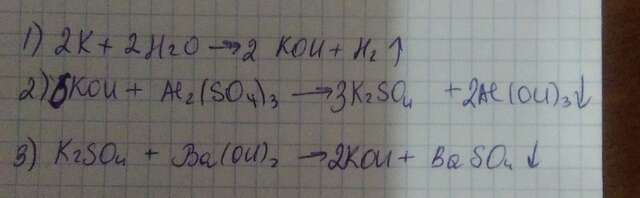 1) 2K + 2H2O → 2 KOH + H2 ↑
2) 6KOH + Al2(SO4)3 → 3K2SO4 + 2Al(OH)3↓
3) K2SO4 + Ba(OH)2 → 2KOH + BaSO4 ↓